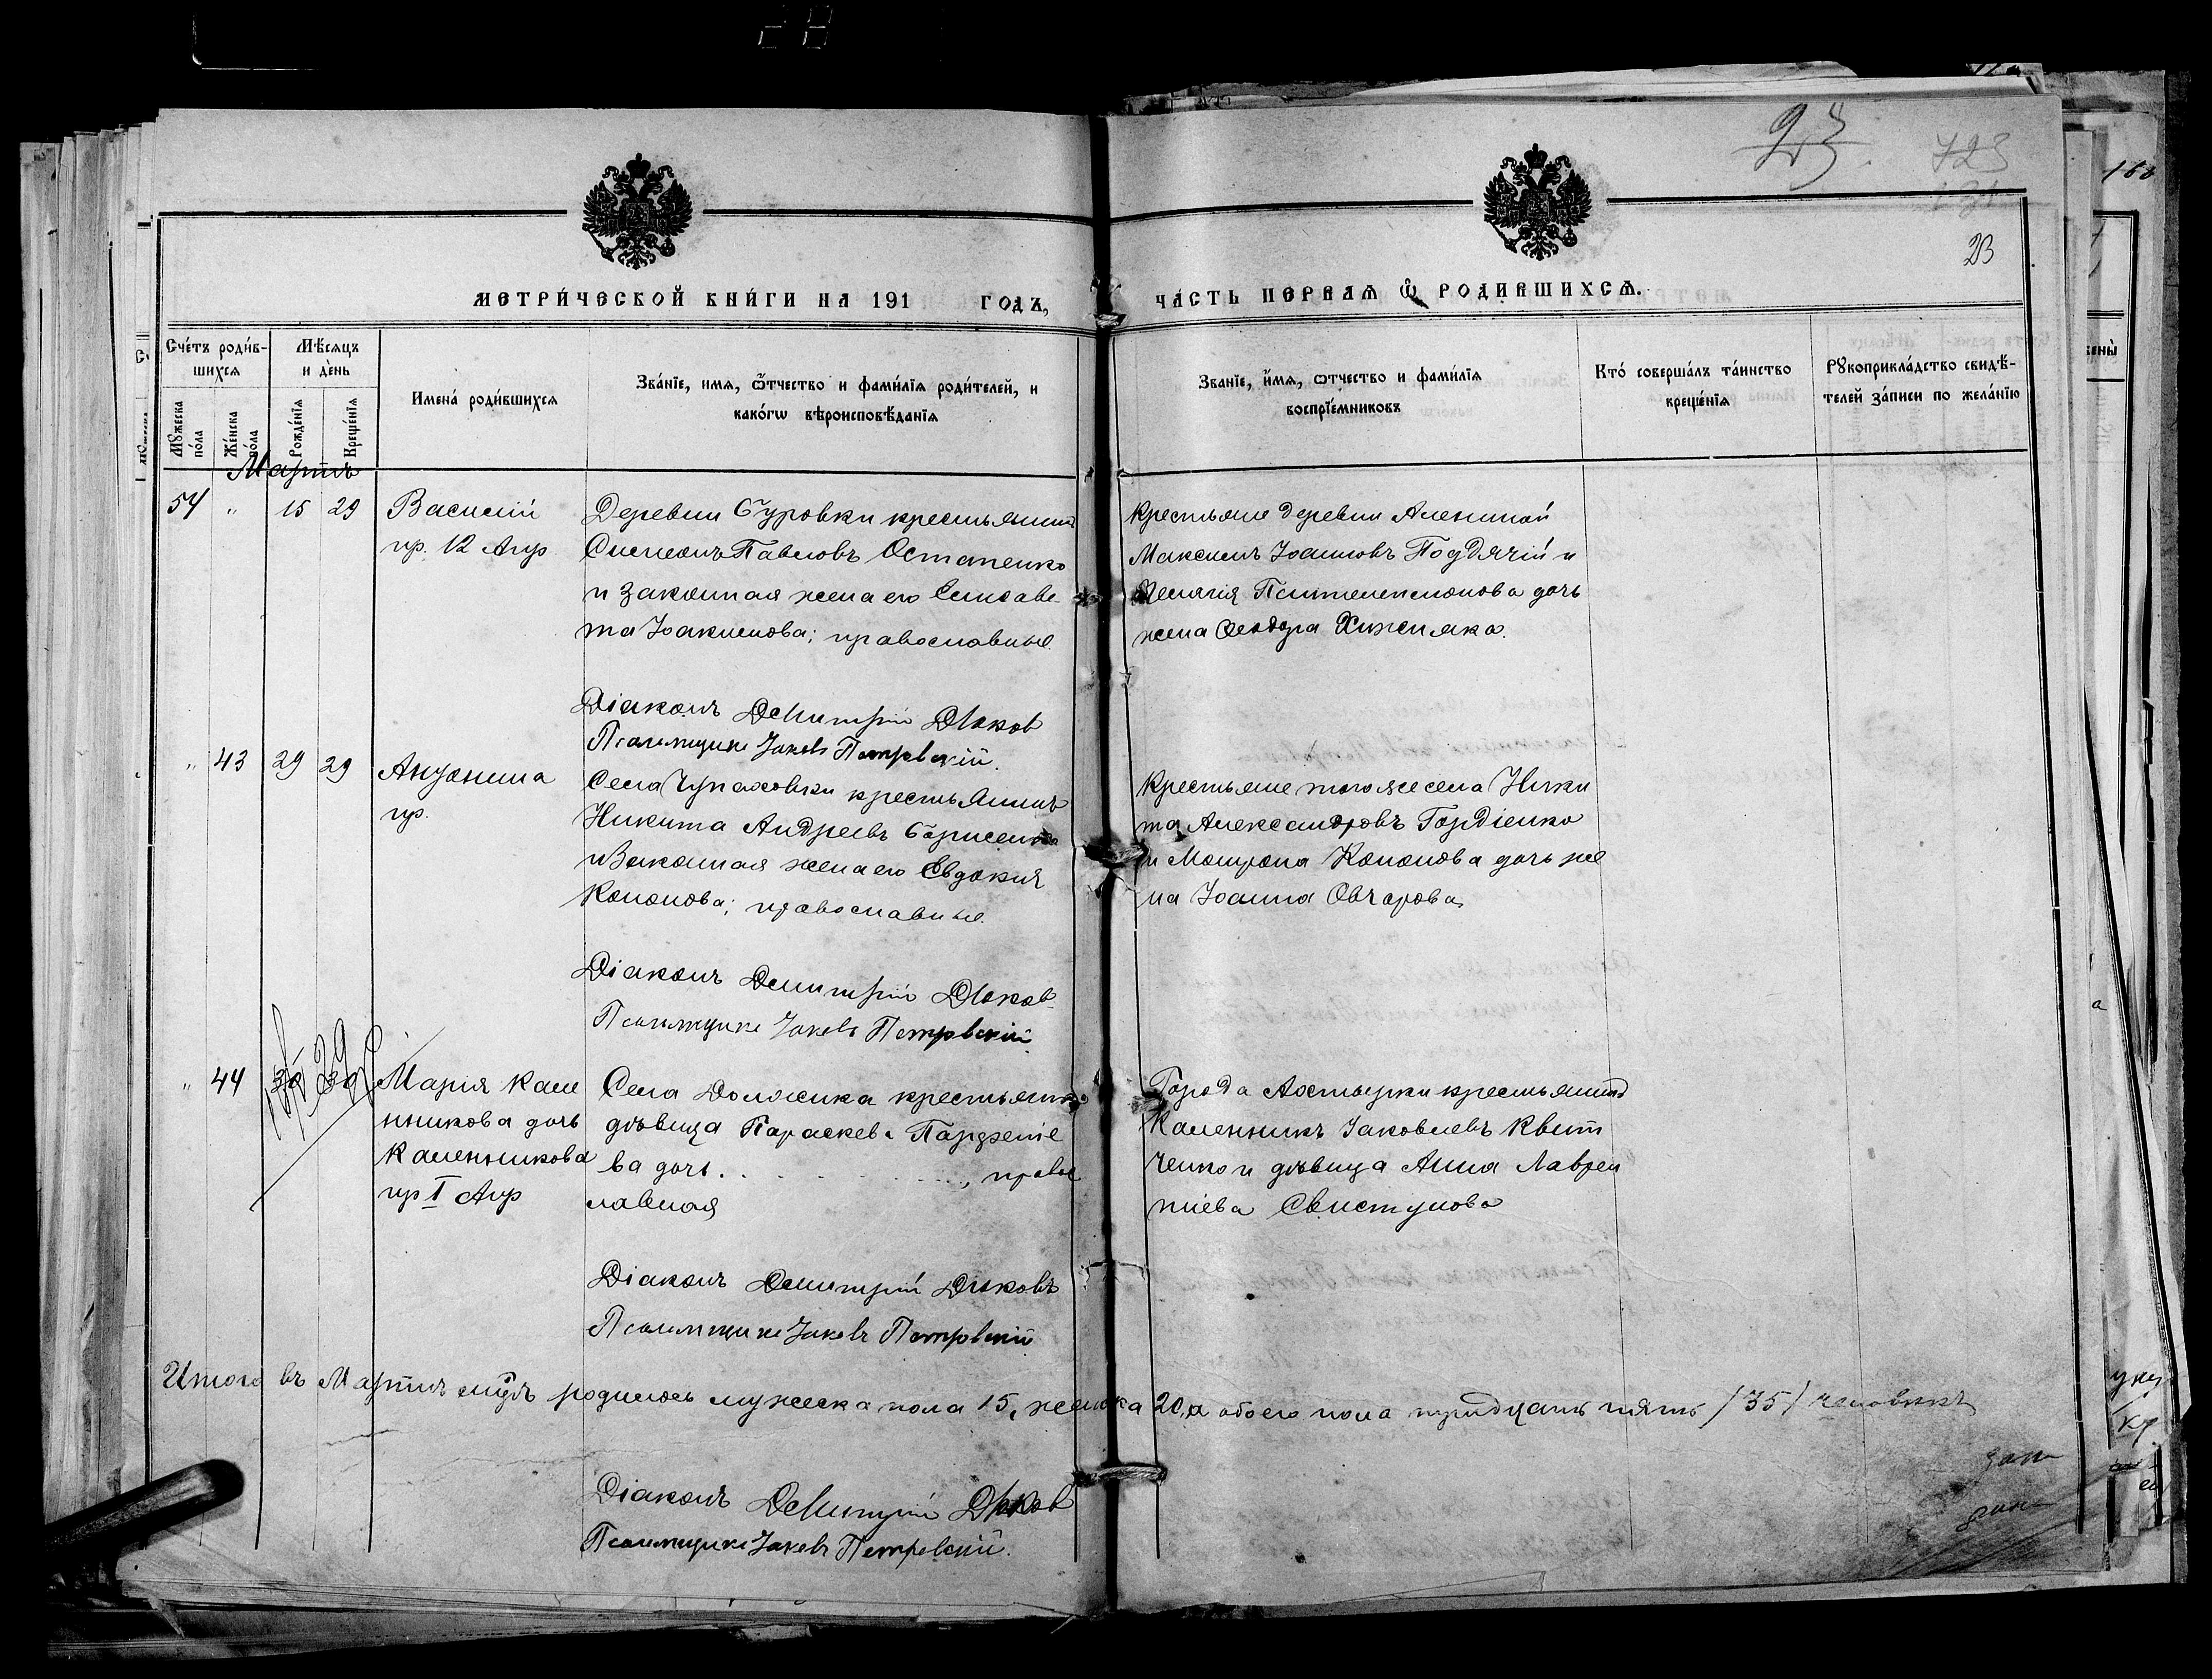 28
23
723
23
168
МЕТРИ́ЧЕСКОЙ КНИ́ГИ НА 191 ГОДЪ,
ЧА́СТЬ ПЕРВАѦ Ѽ РОДИ́ВШИХСѦ.
Счéтъ роди́в-
шихсѧ
Мѣ́сѧцъ
и де́нь
Мꙋ́жеска
по́ла
Же́нска
по́ла
Рожде́нїѧ
Креще́нїѧ
Имена́ роди́вшихсѧ
Зва́нїе, имѧ, ѻ҆́тчество и фами́лїѧ роди́телей, и
како́гѡ вѣроисповѣ́данїѧ
Зва́нїе, и҆́мѧ, ѻтчество и фами́лїѧ
воспрїе́мниковъ
Кто́ соверша́лъ та́инство
креще́нїѧ
Рꙋкоприкла́дство свидѣ́-
телей за́писи по жела́нїю
Мартъ
54 " 15 29 Василій
пр. 12 Апр
Деревни Буровки крестьянинъ
Симеонъ Павловъ Остапенко
и законная жена его Елисаве-
та Іоакимова; православные.
Крестьяне деревни Алениной
Максимъ Іоанновъ Поддячій и
Пелагія Пантелеимонова дочь
жена Ѳеодора Хижняка.
Діаконъ Димитрій Дьяков
Псаломщикъ Іаковъ Петровскій.
" 43 29 29
пр.
Села Чупаховки крестьянинъ
Никита Андреевъ Борисенко
и законная жена его Евдокия
Кононова; православные.
Крестьяне того же села Ники
та Александровъ Гордіенко
и Матрона Кононова дочь же
на Іоанна Овчарова
Діаконъ Димитрій Дьяков
Псаломщикъ Іаковъ Петровскій
" 44 29 Марія Кале
нникова дочь
Каленникова
пр 1 Апр
Села Должика крестьянка
дѣвица Параскева
ва дочь . . . . . . . . , правос
лавная
Города Ахтырки крестьянинъ
Каленникъ Іаковлевъ Квит
ченко и дѣвица Анна Лаврен
тіева Свистунова
Діаконъ Димитрій Дьяковъ
Псаломщикъ Іаковъ Петровскій
Итого въ Мартѣ мцѣ родилось мужеска пола 15, женска 20, а обоего пола тридцать пять /35/ человѣкъ
Діаконъ Димитрій Дьяков
Псаломщикъ Іаковъ Петровскій.